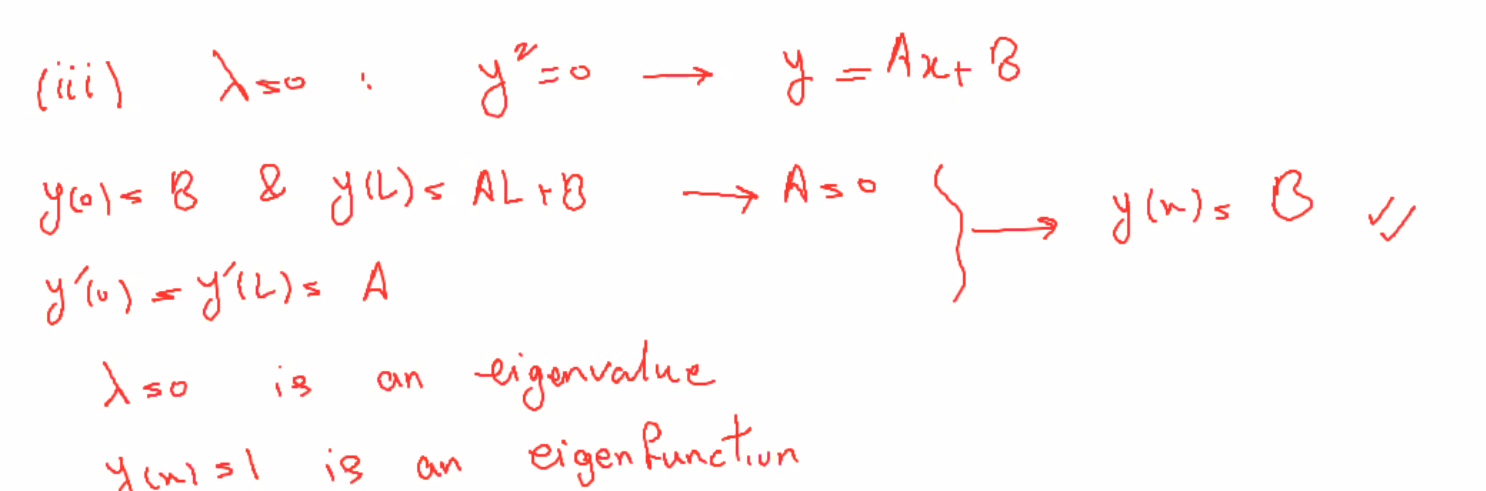 (iii) λ=0 : y″=0 → y = Ax+B
y(0)= B & y(L)= AL+B → A=0 } → y(x)= B ✓✓
y′(0) = y′(L)= A
λ=0 is an eigenvalue
y(x)=1 is an eigenfunction